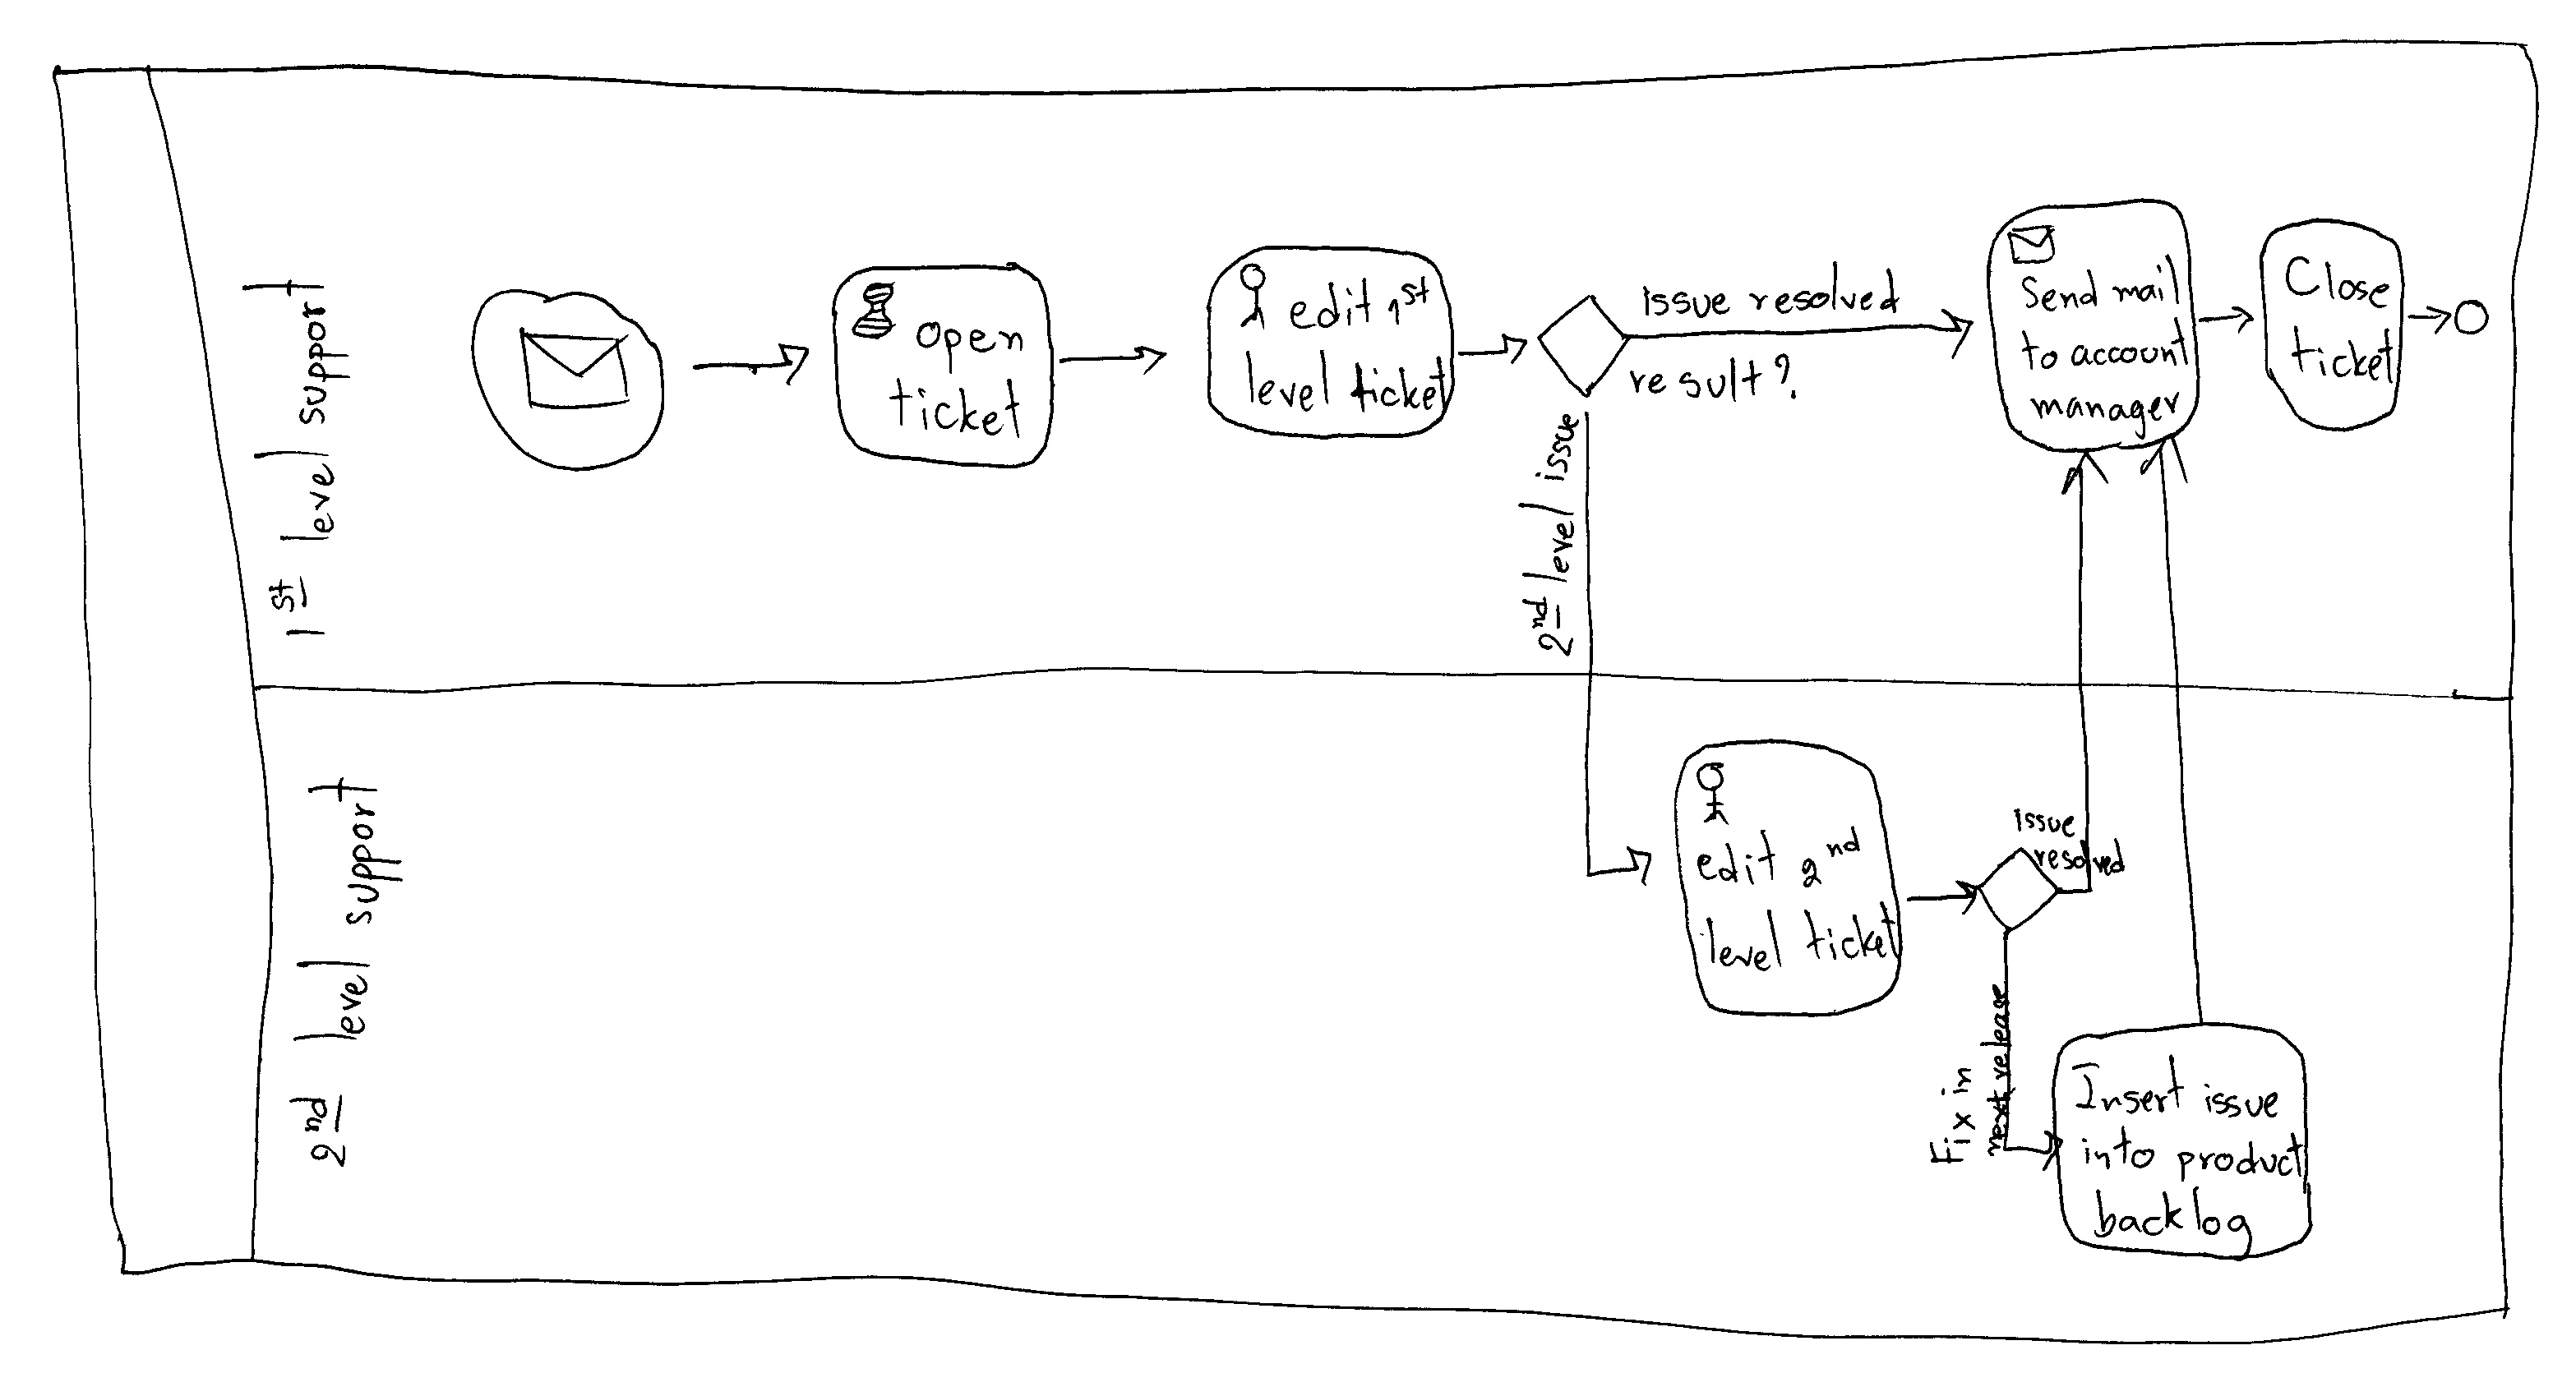 1st level support
open
ticket
edit 1st
level ticket
issue resolved
result?
2nd level issue
Send mail
to account
manager
Close
ticket
2nd level support
edit 2nd
level ticket
issue
resolved
Fix in
next release
Insert issue
into product
backlog